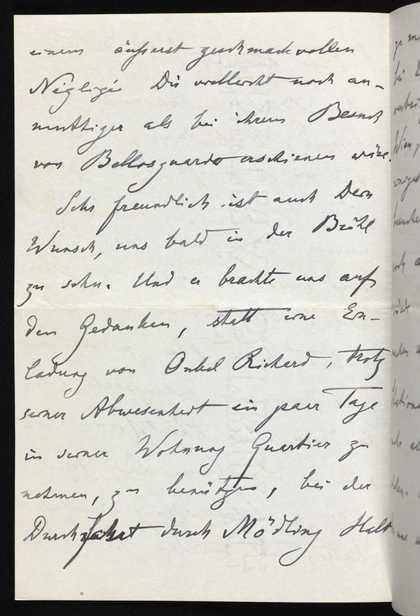 einem äusserst geschmackvollen
Négligé Dir vielleicht noch an-
muthiger als bei ihrem Besuch
von Bellosguardo erschienen wäre.
Sehr freundlich ist auch Dein
Wunsch, uns bald in der Brühl
zu sehn. Und er brachte uns auf
den Gedanken, statt eine Ein-
ladung von Onkel Richard, trotz
seiner Abwesenheit ein paar Tage
in seiner Wohnung Quartier zu
nehmen, zu benützen, bei der
Durchfahrt durch Mödling Halt